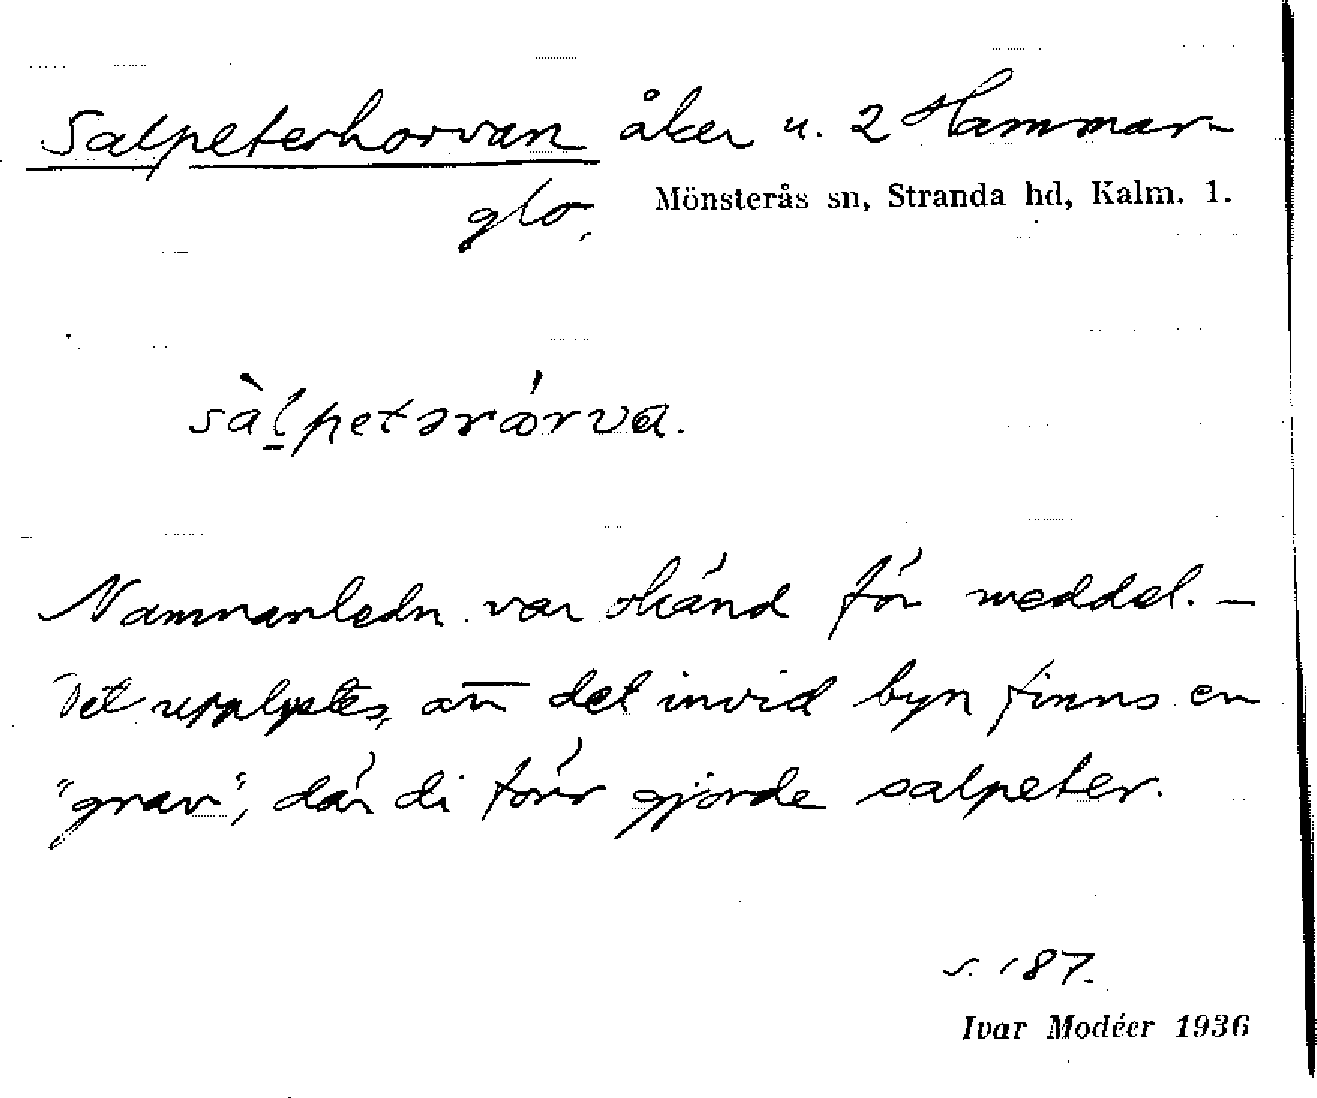 Salpeterhorvan åker u. 2 Hammar-
glo,
Mönsterås sn, Stranda hd, Kalm. l.
sàlpetərǿrva.
Namnanledn. var okänd för meddel. –
Det upplystes, att det invid byn finns en
"grav", där di förr gjorde salpeter.
s. 187.
Ivar Modéer 1936